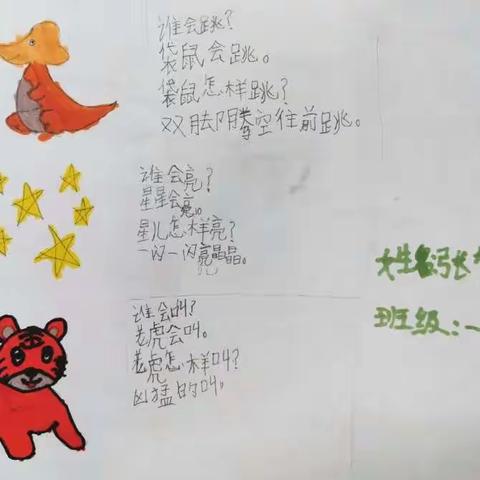 谁会跳?
袋鼠会跳。
袋鼠怎样跳?
双脚腾空往前跳。
谁会亮?
星星会亮。
星儿怎样亮?
一闪一闪亮晶晶。
谁会叫?
老虎会叫。
老虎怎样叫?
凶猛的叫。
姓名:张
班级:一